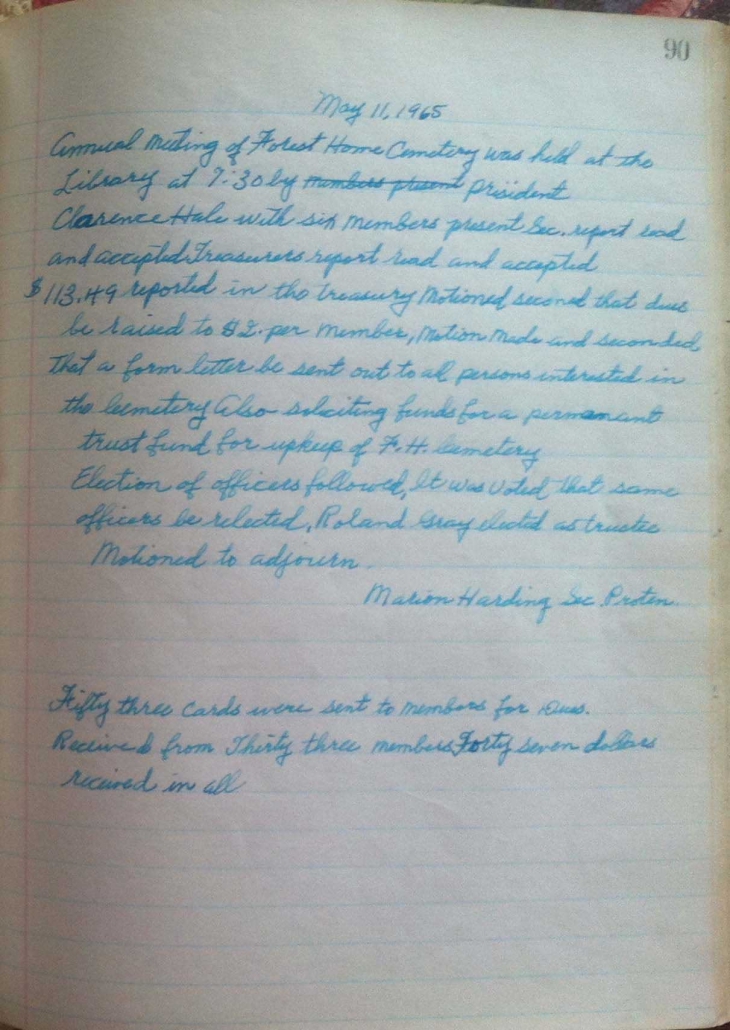 90
May 11, 1965
Annual Meeting of Forest Home Cemetery was held at the
Library at 7:30 by members present Prisident
Clarence Hale with six members present Sec. report read
and accepted Treasurers report read and accepted
$113.49 reported in the treasury Motioned second that dues
be raised to $2. per member, Motion Made and seconded
that a form letter be sent out to all persons interested in
the Cemetery Also soliciting funds for a permanant
trust fund for upkeep of F.H. Cemetery
Election of officers followed, It was voted that same
officers be relected, Roland Gray elected as trustee
Motioned to adjourn.
Marion Harding Sec. Protem.
Fifty three cards were sent to members for Dues.
Received from Thirty three members Forty seven dollars
received in all